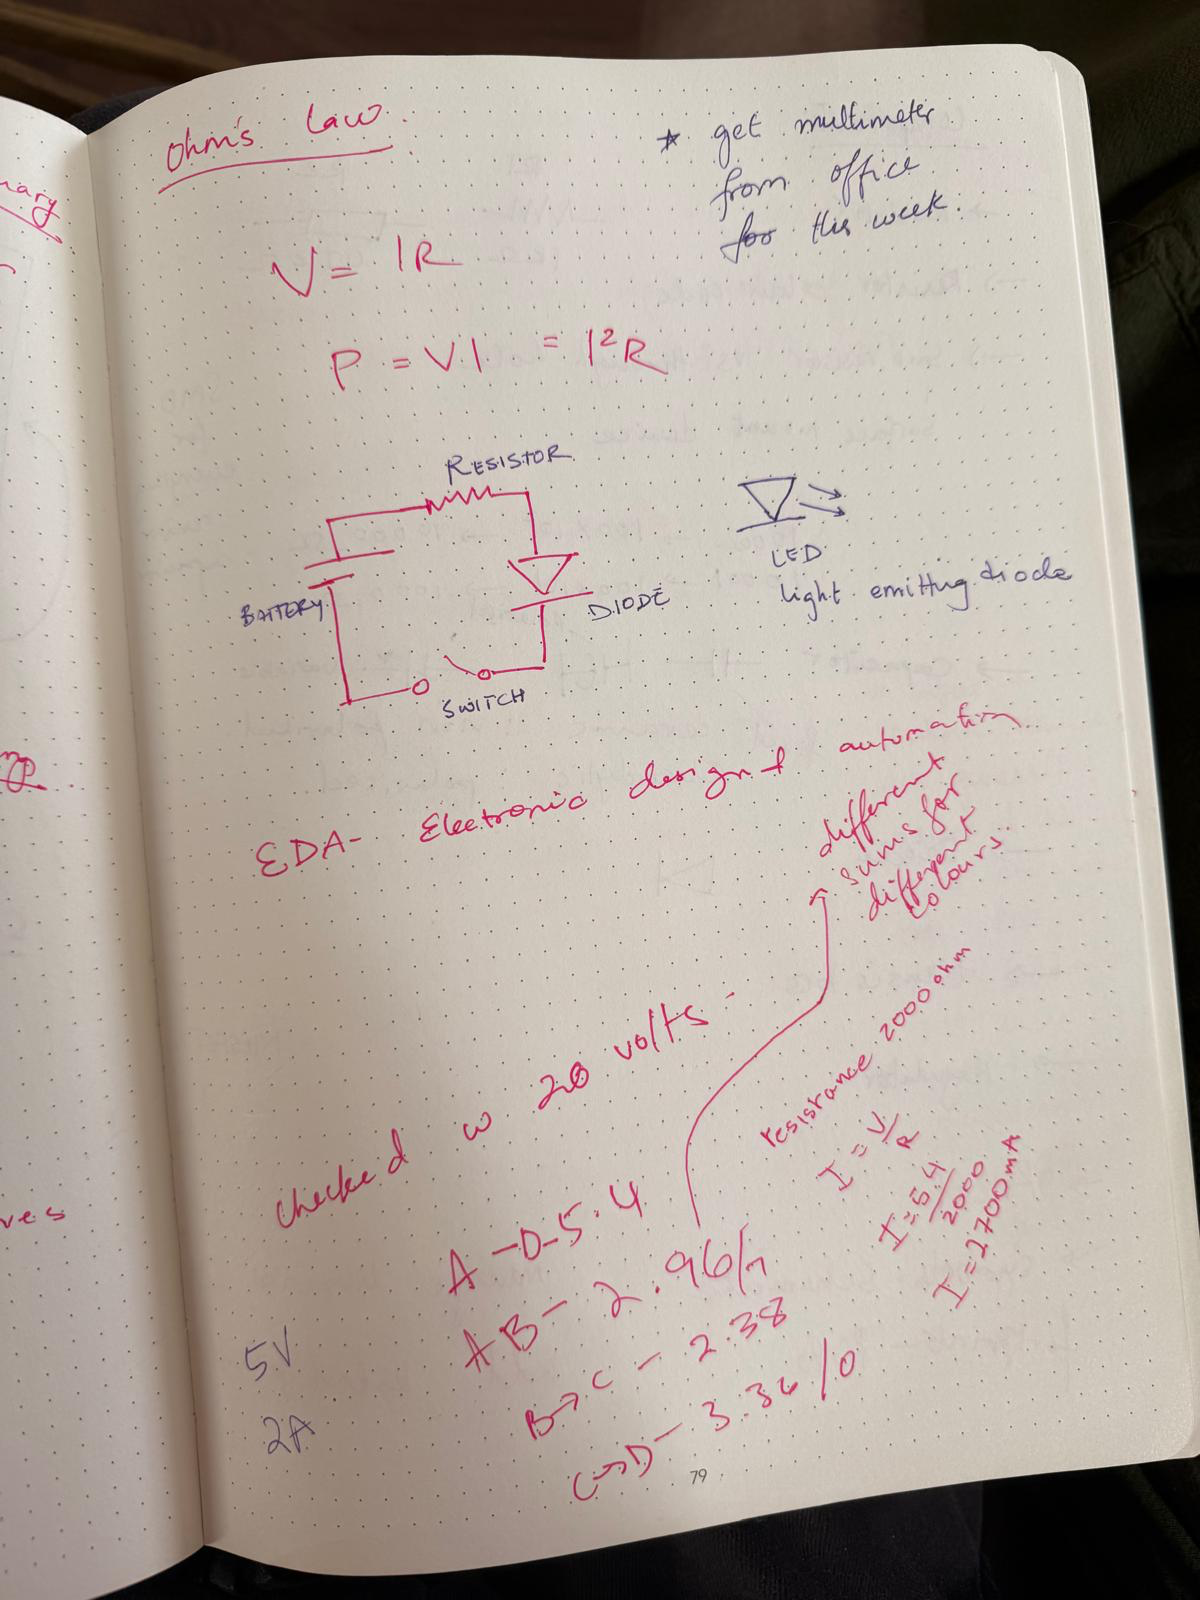 Ohm's Law.
* get multimeter
from office
for this week.
V = IR
P = VI = I²R
RESISTOR
BATTERY
DIODE
SWITCH
LED
light emitting diode
EDA- Electronic design automation
different
sums for
different
colours.
checked w 20 volts
resistance 2000 ohm
I = V/R
I = 5.4/2000
I = 2700mA
A-D-5.4
AB- 2.96/
B→C - 2.38
C→D- 3.36/0
5V
2A
79
nary
ves